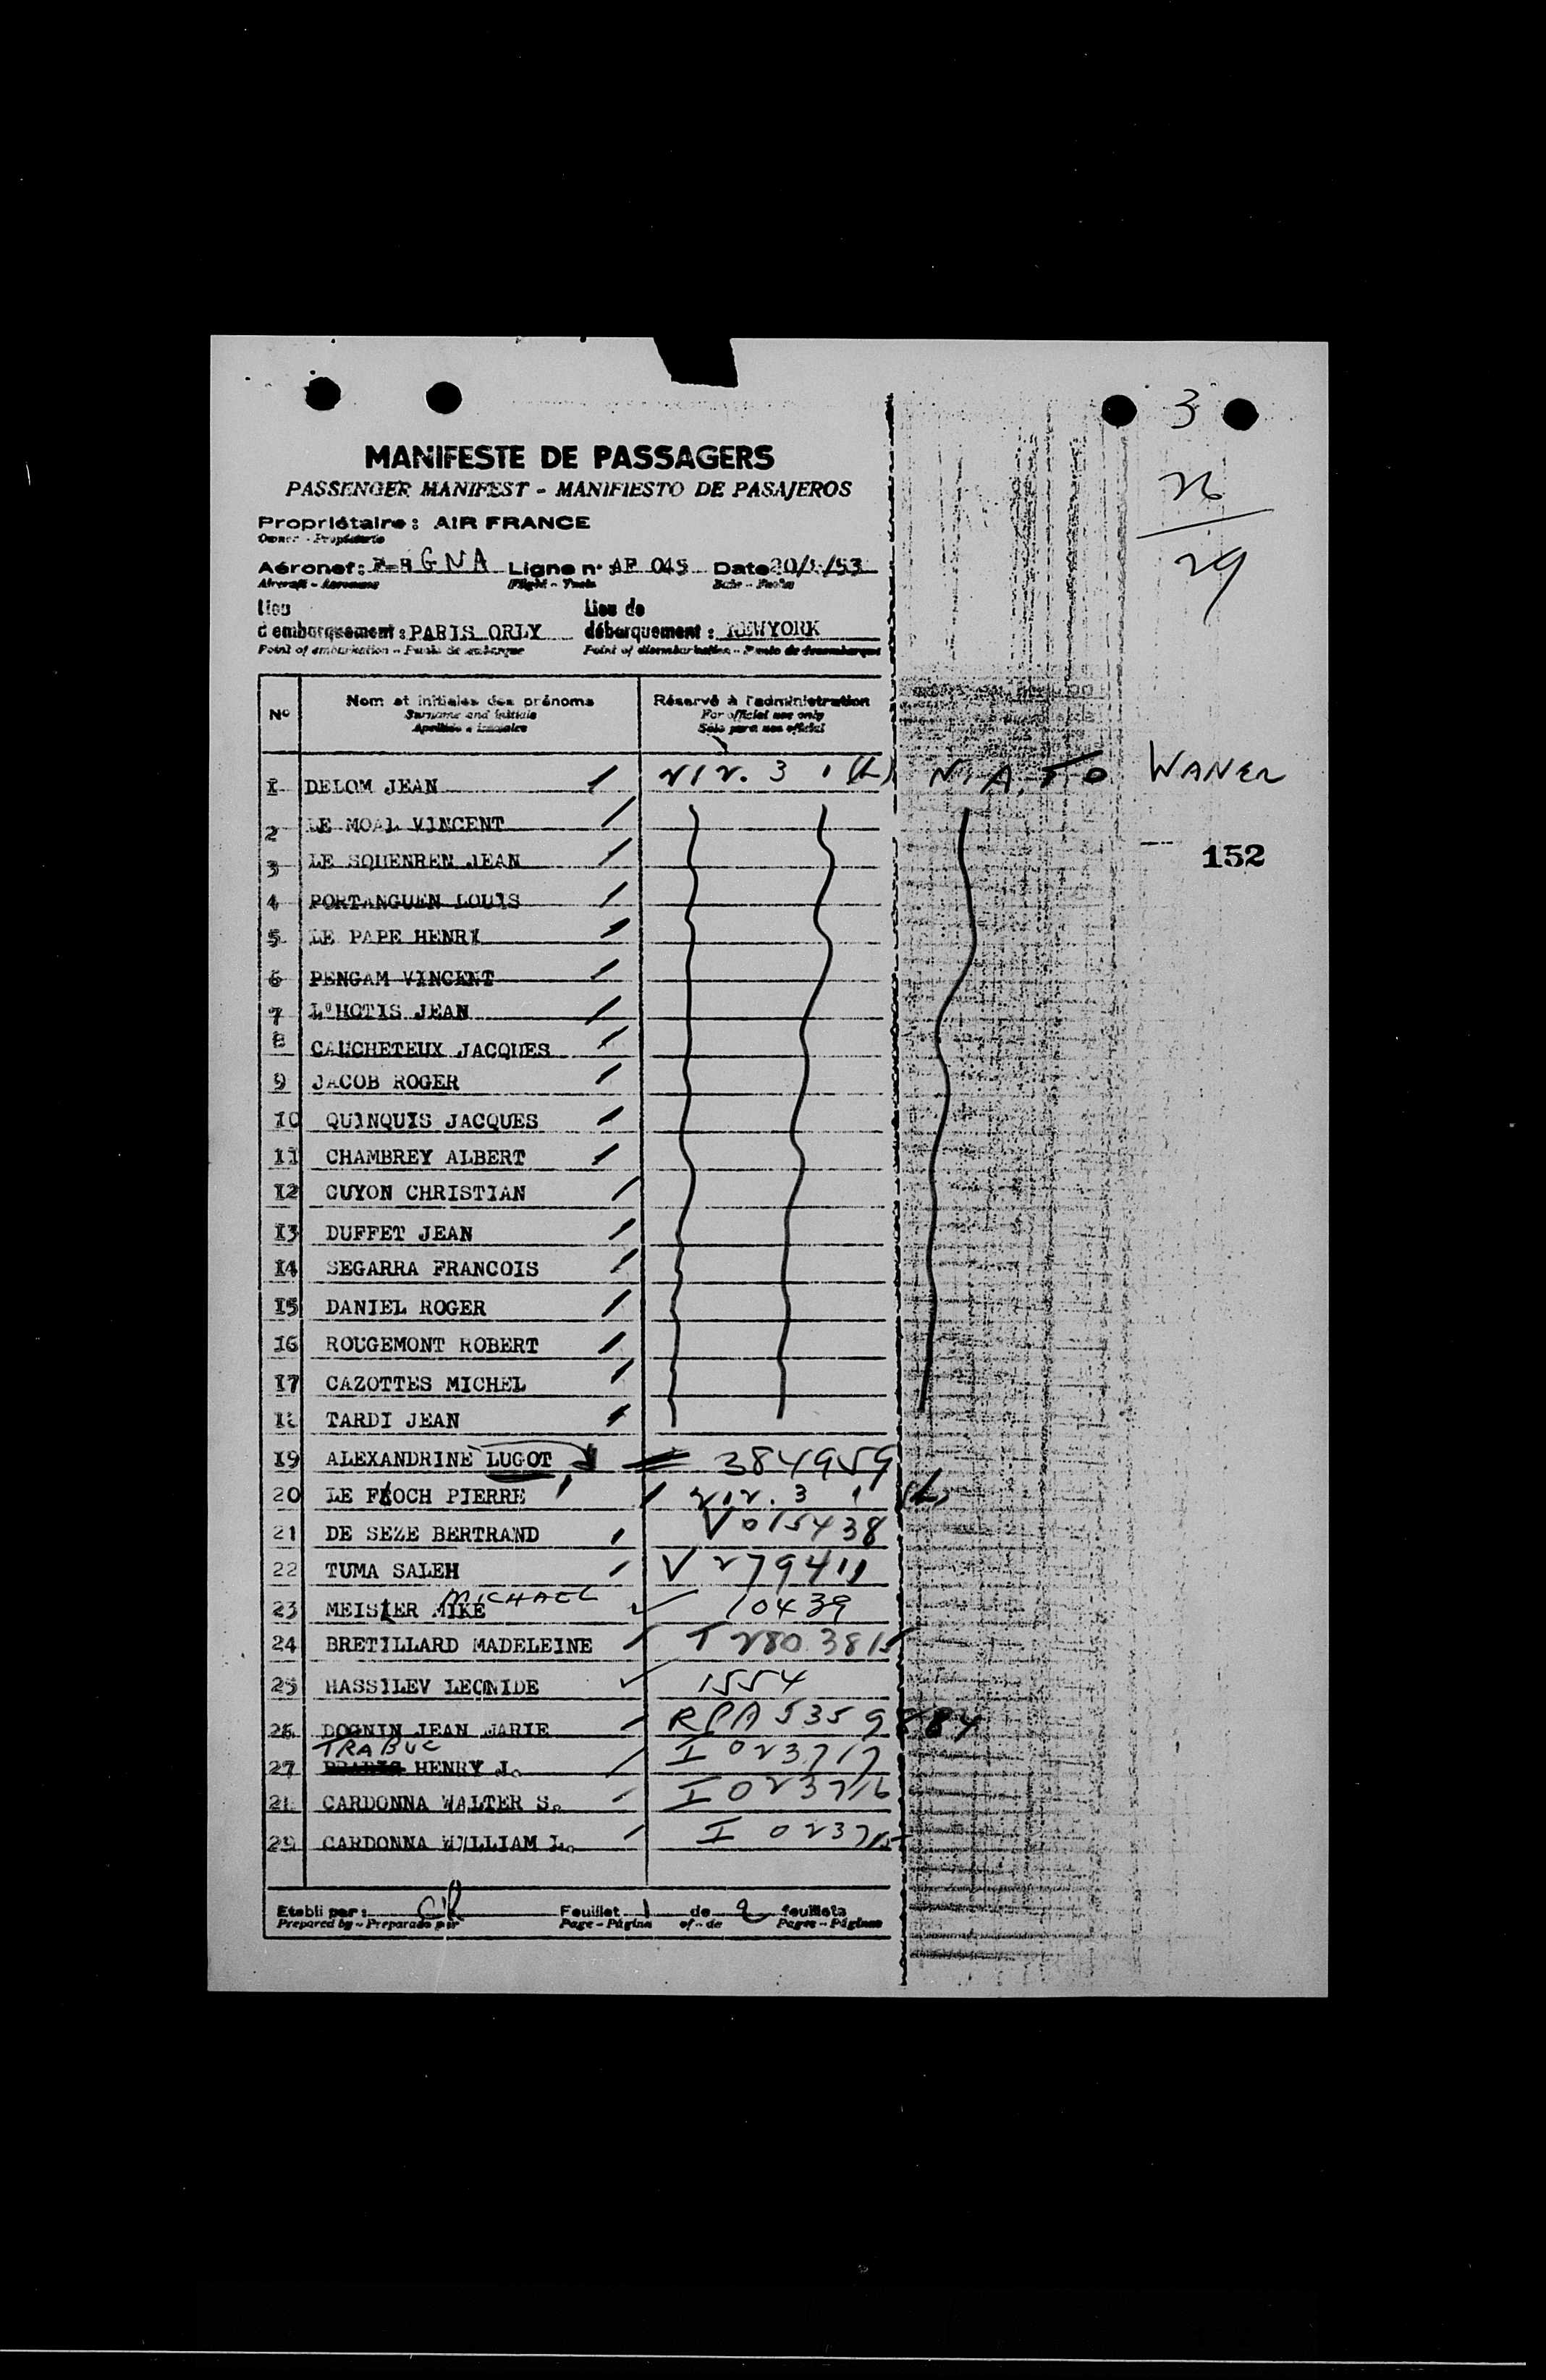 3
26
29
MANIFESTE DE PASSAGERS
PASSENGER MANIFEST - MANIFIESTO DE PASAJEROS
Propriétaire : AIR FRANCE
Owner - Propietario
Aéronef : F-BGNA Ligne n° AF 045 Date 20/ /53
Aircraft - Aeronave Flight - Date - Fecha
Lieu d'embarquement : PARIS ORLY Lieu de débarquement : NEWYORK
Point of embarkation - Punto de embarque Point of disembarkation - Punto de desembarque
N° Nom et initiales des prénoms Réservé à l'administration
Surname and initials For official use only
Apellido e iniciales Sólo para uso oficial
1 DELOM JEAN 212.3 1 (L) N.A.T.O WANER
2 LE MOAL VINCENT
152
3 LE SQUENREN JEAN
4 PORTANGUEN LOUIS
5 LE PAPE HENRI
6 PENGAM VINCENT
7 L'HOTIS JEAN
8 CAUCHETEUX JACQUES
9 JACOB ROGER
10 QUINQUIS JACQUES
11 CHAMBREY ALBERT
12 GUYON CHRISTIAN
13 DUFFET JEAN
14 SEGARRA FRANCOIS
15 DANIEL ROGER
16 ROUGEMONT ROBERT
17 CAZOTTES MICHEL
18 TARDI JEAN
19 ALEXANDRINE LUGOT 384959
20 LE FLOCH PIERRE 212.3 1 (L)
21 DE SEZE BERTRAND V015438
22 TUMA SALEH V279411
MICHAEL
23 MEISTER MIKE 10439
24 BRETILLARD MADELEINE T2803815
25 HASSILEV LEONIDE 1554
26 DOGNIN JEAN MARIE RPA 5359884
TRABUC
27 HENRY J. I 023717
28 CARDONNA WALTER S. I 023716
29 CARDONNA WILLIAM L. I 023715
Etabli par : CR Feuillet 1 de 2 feuillets
Prepared by - Preparado por Page - Página of - de Pages - Páginas